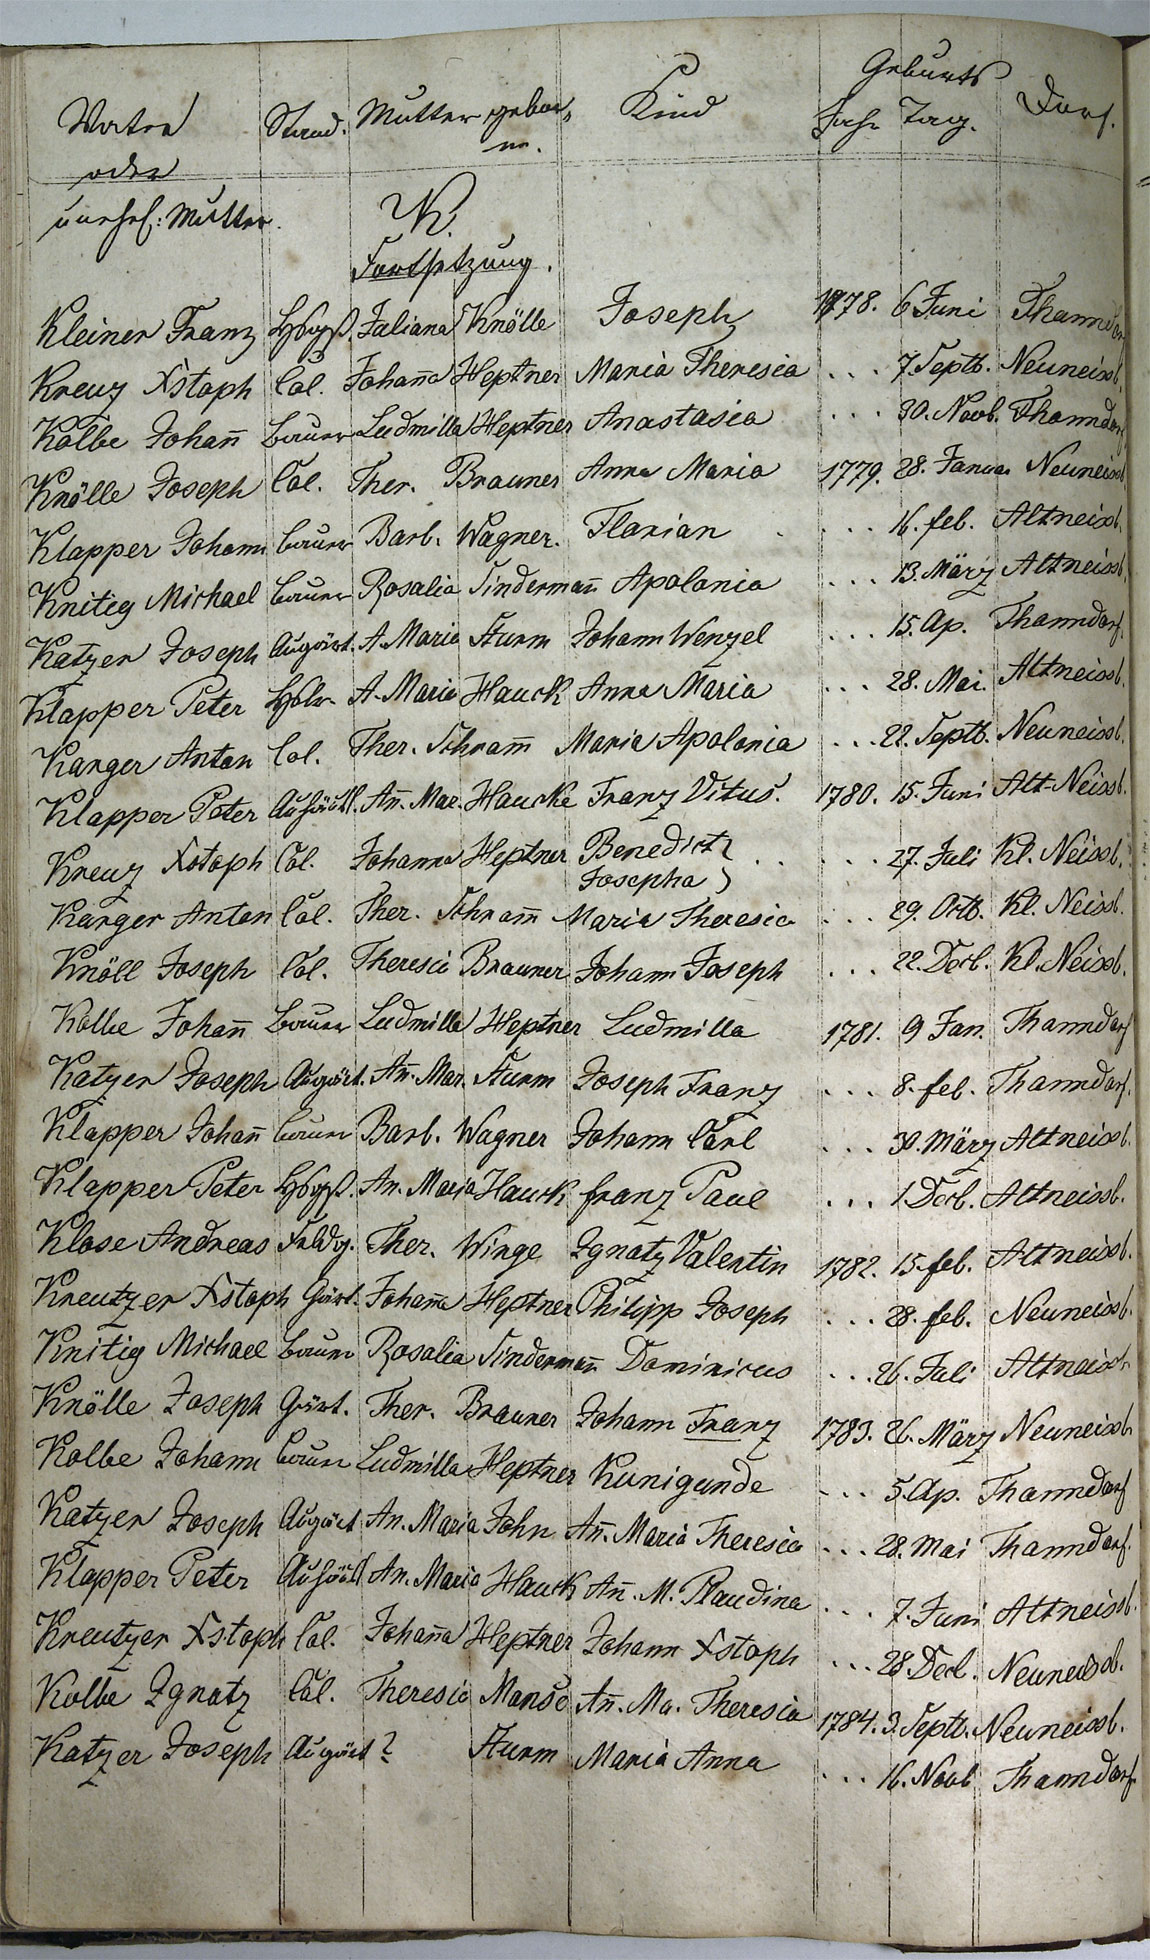 Geburts
Vater Stand. Mutter gebor,, Kind Jahr Tag. Dorf.
oder ne.
unehel: Mutter.
K.
Fortsetzung.
Kleiner Franz Juliana Knölle Joseph 1778. 6 Juni Thanndor
Kreuz Xstoph Col. Johana Heptner Maria Theresia . . . 7. Septb. Neuneissb.
Kolbe Johan bauer Ludmilla Heptner Anastasia . . . 30. Novb. Thanndorf
Knölle Joseph Col. Ther. Brauner Anna Maria 1779. 28. Januar Neuneissb.
Klapper Johann bauer Barb. Wagner. Florian . . . 16. feb. Altneissb.
Knitig Michael bauer Rosalia Sinderman Apolonia . . . 13. März Altneissb.
Katzer Joseph Augärt. A. Maria Sturm Johann Wenzel . . . 15. Ap. Thanndorf.
Klapper Peter A. Maria Hauck Anna Maria . . . 28. Mai. Altneissb.
Karger Anton Col. Ther. Schram Maria Apolonia . . . 22. Septb. Neuneissb.
Klapper Peter An. Mar. Haucke Franz Vitus. 1780. 15. Juni Alt-Neissb.
Kreuz Xstoph Col. Johanna Heptner Benedict } . . . . . 27. Juli Kl. Neissb.
Josepha }
Karger Anton Col. Ther. Schram Maria Theresia . . . 29. Octb. Kl. Neissb.
Knöll Joseph Col. Theresia Brauner Johann Joseph . . . 22. Decb. Kl. Neissb.
Kolbe Johan bauer Ludmilla Heptner Ludmilla 1781. 9 Jan. Thanndorf
Katzer Joseph Augärt. An. Mar. Sturm Joseph Franz . . . 8. feb. Thanndorf.
Klapper Johan bauer Barb. Wagner Johann Carl . . . 30. März Altneissb.
Klapper Peter An. Maria Hauck franz Paul . . . 1. Decb. Altneissb.
Klose Andreas Feldg. Ther. Winge Ignatz Valentin 1782. 15. feb. Altneissb.
Kreutzer Xstoph Gärt. Johanna Heptner Philipp Joseph . . . 28. feb. Neuneissb.
Knitig Michael bauer Rosalia Sinderman Dominicus . . . 26. Juli Altneissb.
Knölle Joseph Gärt. Ther. Brauner Johann Franz 1783. 26. März Neuneissb.
Kolbe Johann bauer Ludmilla Heptner Kunigunde . . . 5. Ap. Thanndorf
Katzer Joseph Augärt An. Maria John An. Maria Theresia . . . 28. Mai Thanndorf.
Klapper Peter An. Maria Hauck An. M. Claudina . . . 7. Juni Altneissb.
Kreutzer Xstoph Col. Johana Heptner Johann Xstoph . . . 28 Decb. Neuneissb.
Kolbe Ignatz Col. Theresia An. Ma. Theresia 1784. 3. Septb. Neuneissb.
Katzer Joseph Augärt ? Sturm Maria Anna . . . 16. Novb Thanndorf.